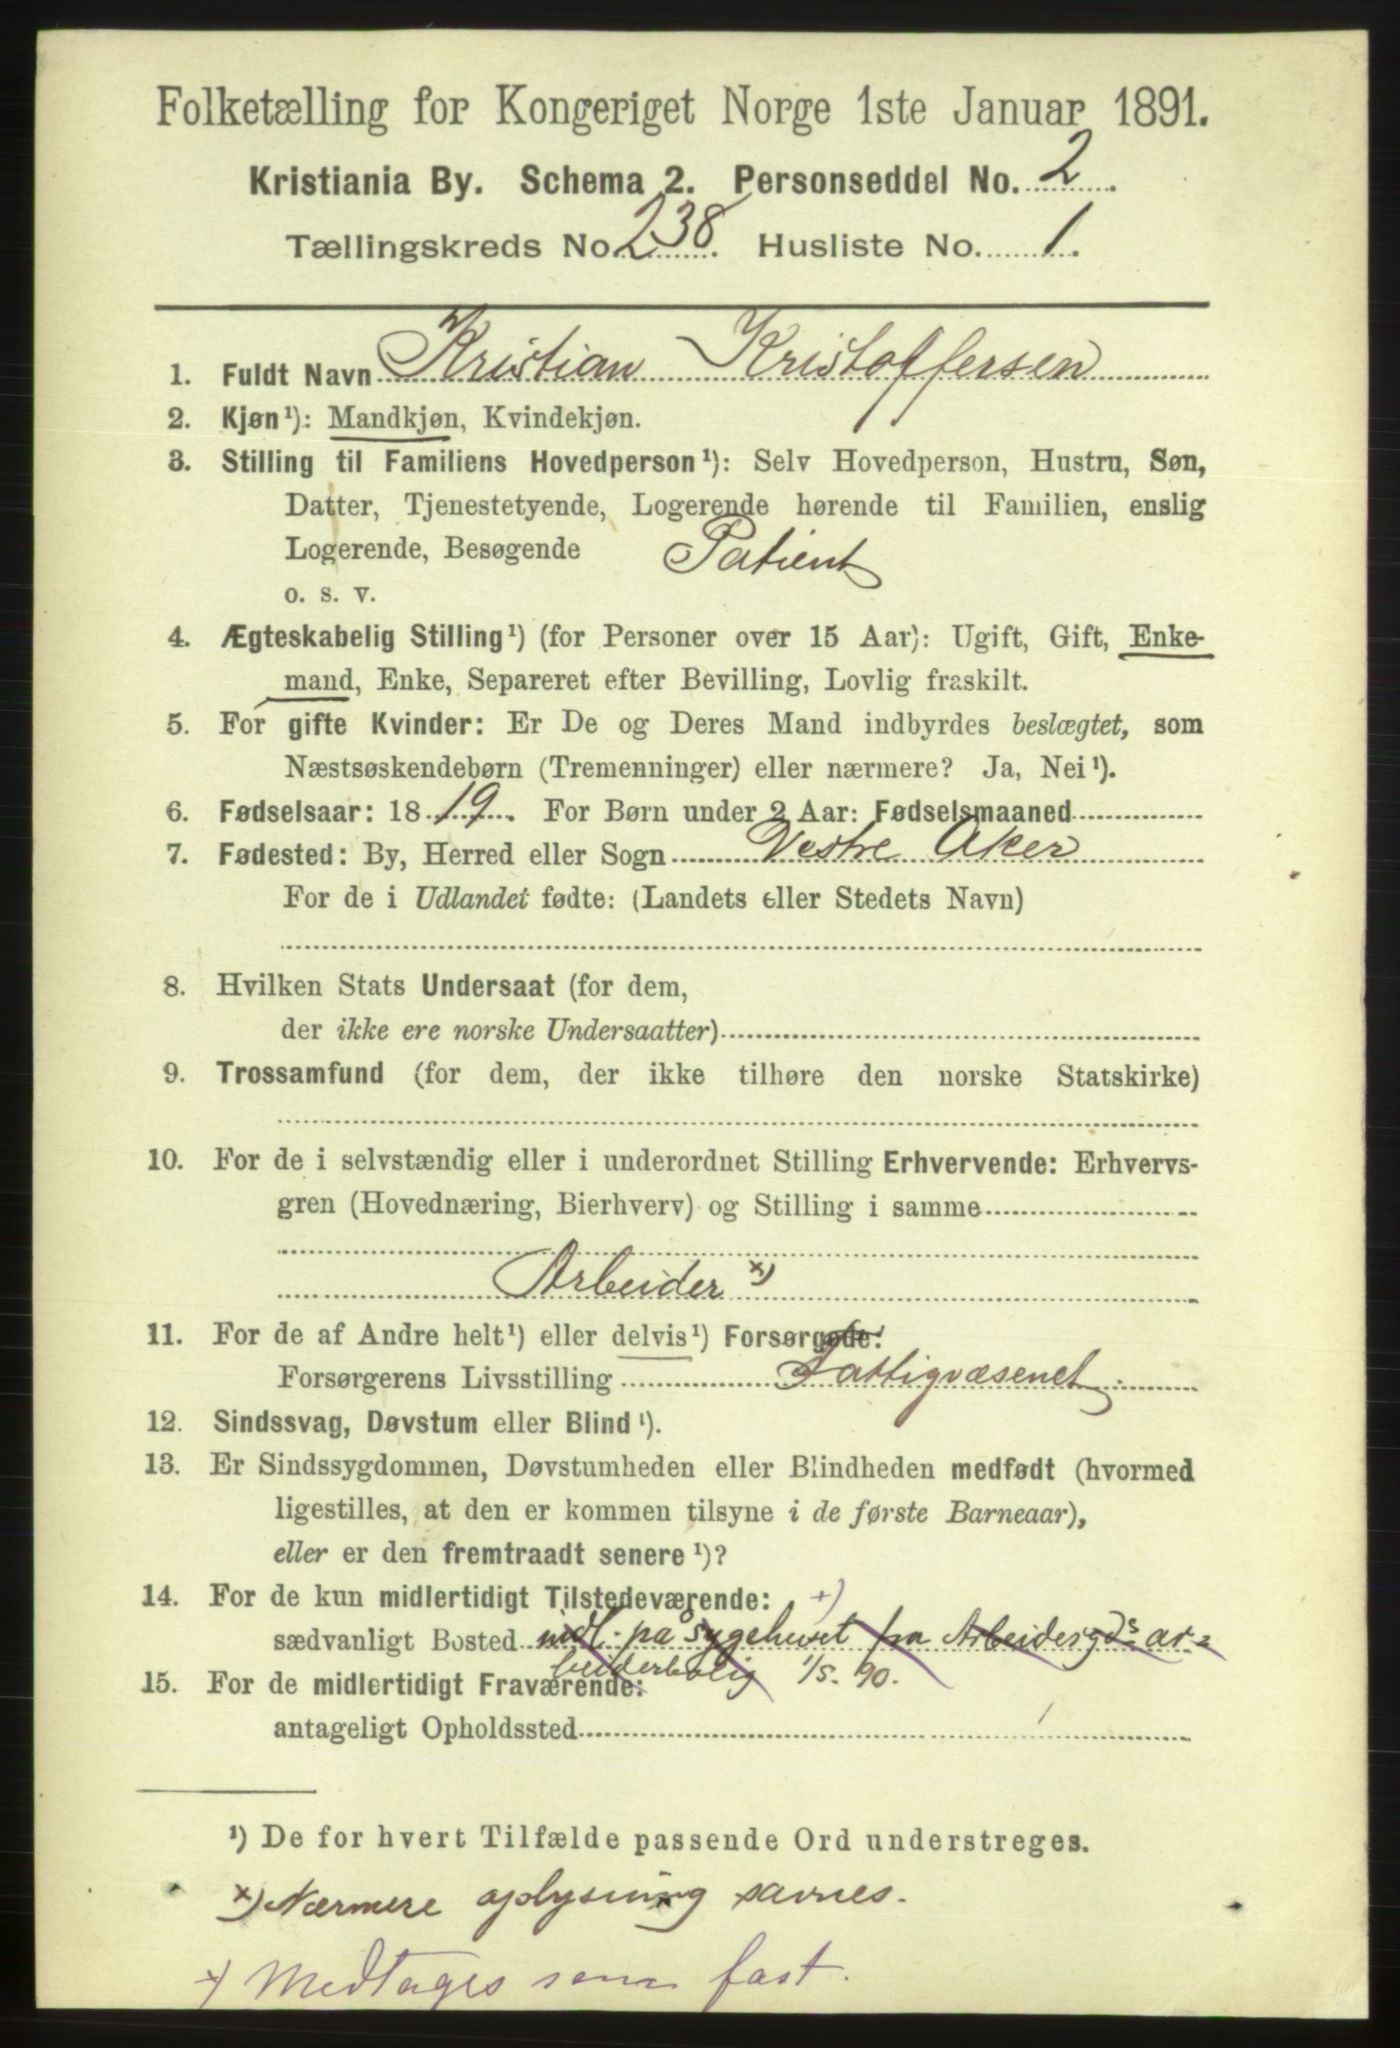 Folketælling for Kongeriget Norge 1ste Januar 1891.
Kristiania By. Schema 2. Personseddel No. 2.
Tællingskreds No. 238. Husliste No. 1.
1. Fuldt Navn Kristian Kristoffersen
2. Kjøn¹): Mandkjøn, Kvindekjøn.
3. Stilling til Familiens Hovedperson¹): Selv Hovedperson, Hustru, Søn,
Datter, Tjenestetyende, Logerende hørende til Familien, enslig
Logerende, Besøgende Patient
o. s. v.
4. Ægteskabelig Stilling¹) (for Personer over 15 Aar): Ugift, Gift, Enke-
mand, Enke, Separeret efter Bevilling, Lovlig fraskilt.
5. For gifte Kvinder: Er De og Deres Mand indbyrdes beslægtet, som
Næstsøskendebørn (Tremenninger) eller nærmere? Ja, Nei¹).
6. Fødselsaar: 1819. For Børn under 2 Aar: Fødselsmaaned
7. Fødested: By, Herred eller Sogn Vestre Aker
For de i Udlandet fødte: (Landets eller Stedets Navn)
8. Hvilken Stats Undersaat (for dem,
der ikke ere norske Undersaatter)
9. Trossamfund (for dem, der ikke tilhøre den norske Statskirke)
10. For de i selvstændig eller i underordnet Stilling Erhvervende: Erhvervs-
gren (Hovednæring, Bierhverv) og Stilling i samme
Arbeider x)
11. For de af Andre helt¹) eller delvis¹) Forsørgede:
Forsørgerens Livsstilling Fattigvæsenet.
12. Sindssvag, Døvstum eller Blind¹).
13. Er Sindssygdommen, Døvstumheden eller Blindheden medfødt (hvormed
ligestilles, at den er kommen tilsyne i de første Barneaar),
eller er den fremtraadt senere¹)?
14. For de kun midlertidigt Tilstedeværende: +)
sædvanligt Bosted midl. på Sygehuset fra Arbeidersgds ar=
beiderbolig 1/5. 90.
15. For de midlertidigt Fraværende:
antageligt Opholdssted
¹) De for hvert Tilfælde passende Ord understreges.
x) Nærmere oplysning savnes.
+) Medtages som fast.